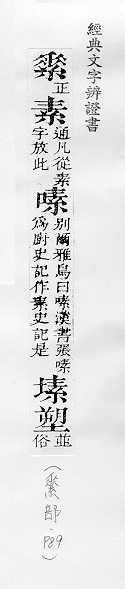 經典文字辨證書
𦃃正素通凡從素字放此嗉別爾雅鳥曰嗉漢書張嗉為廚史記作𦃃史記是塐塑並俗
(𦃃部·P89)